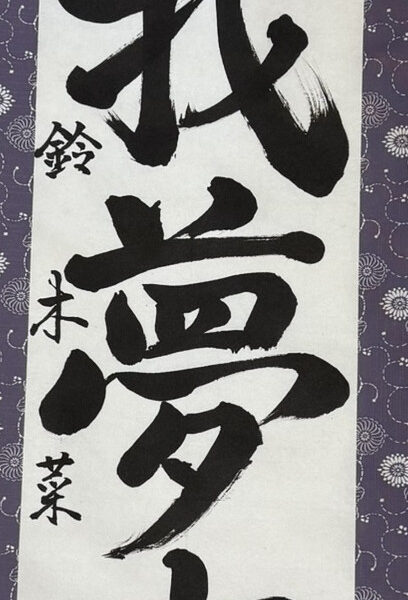 我夢
鈴木菜